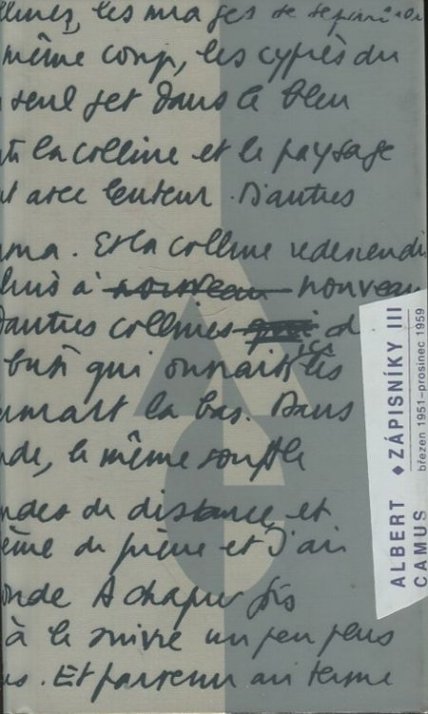 les images de se
même coup, les cyprès du
seul jet dans le bleu
la colline et le paysage
avec lenteur. D'autres
Et la colline redescendi
à nouveau nouveau
d'autres collines qui d
qui
la bas. Dans
de, le même souffle
de distance et
de pierre et j'ai
onde A chaque fois
à le suivre un peu plus
s. Et parvenu au terme
ALBERT CAMUS ◆ ZÁPISNÍKY III
březen 1951–prosinec 1959
A
C